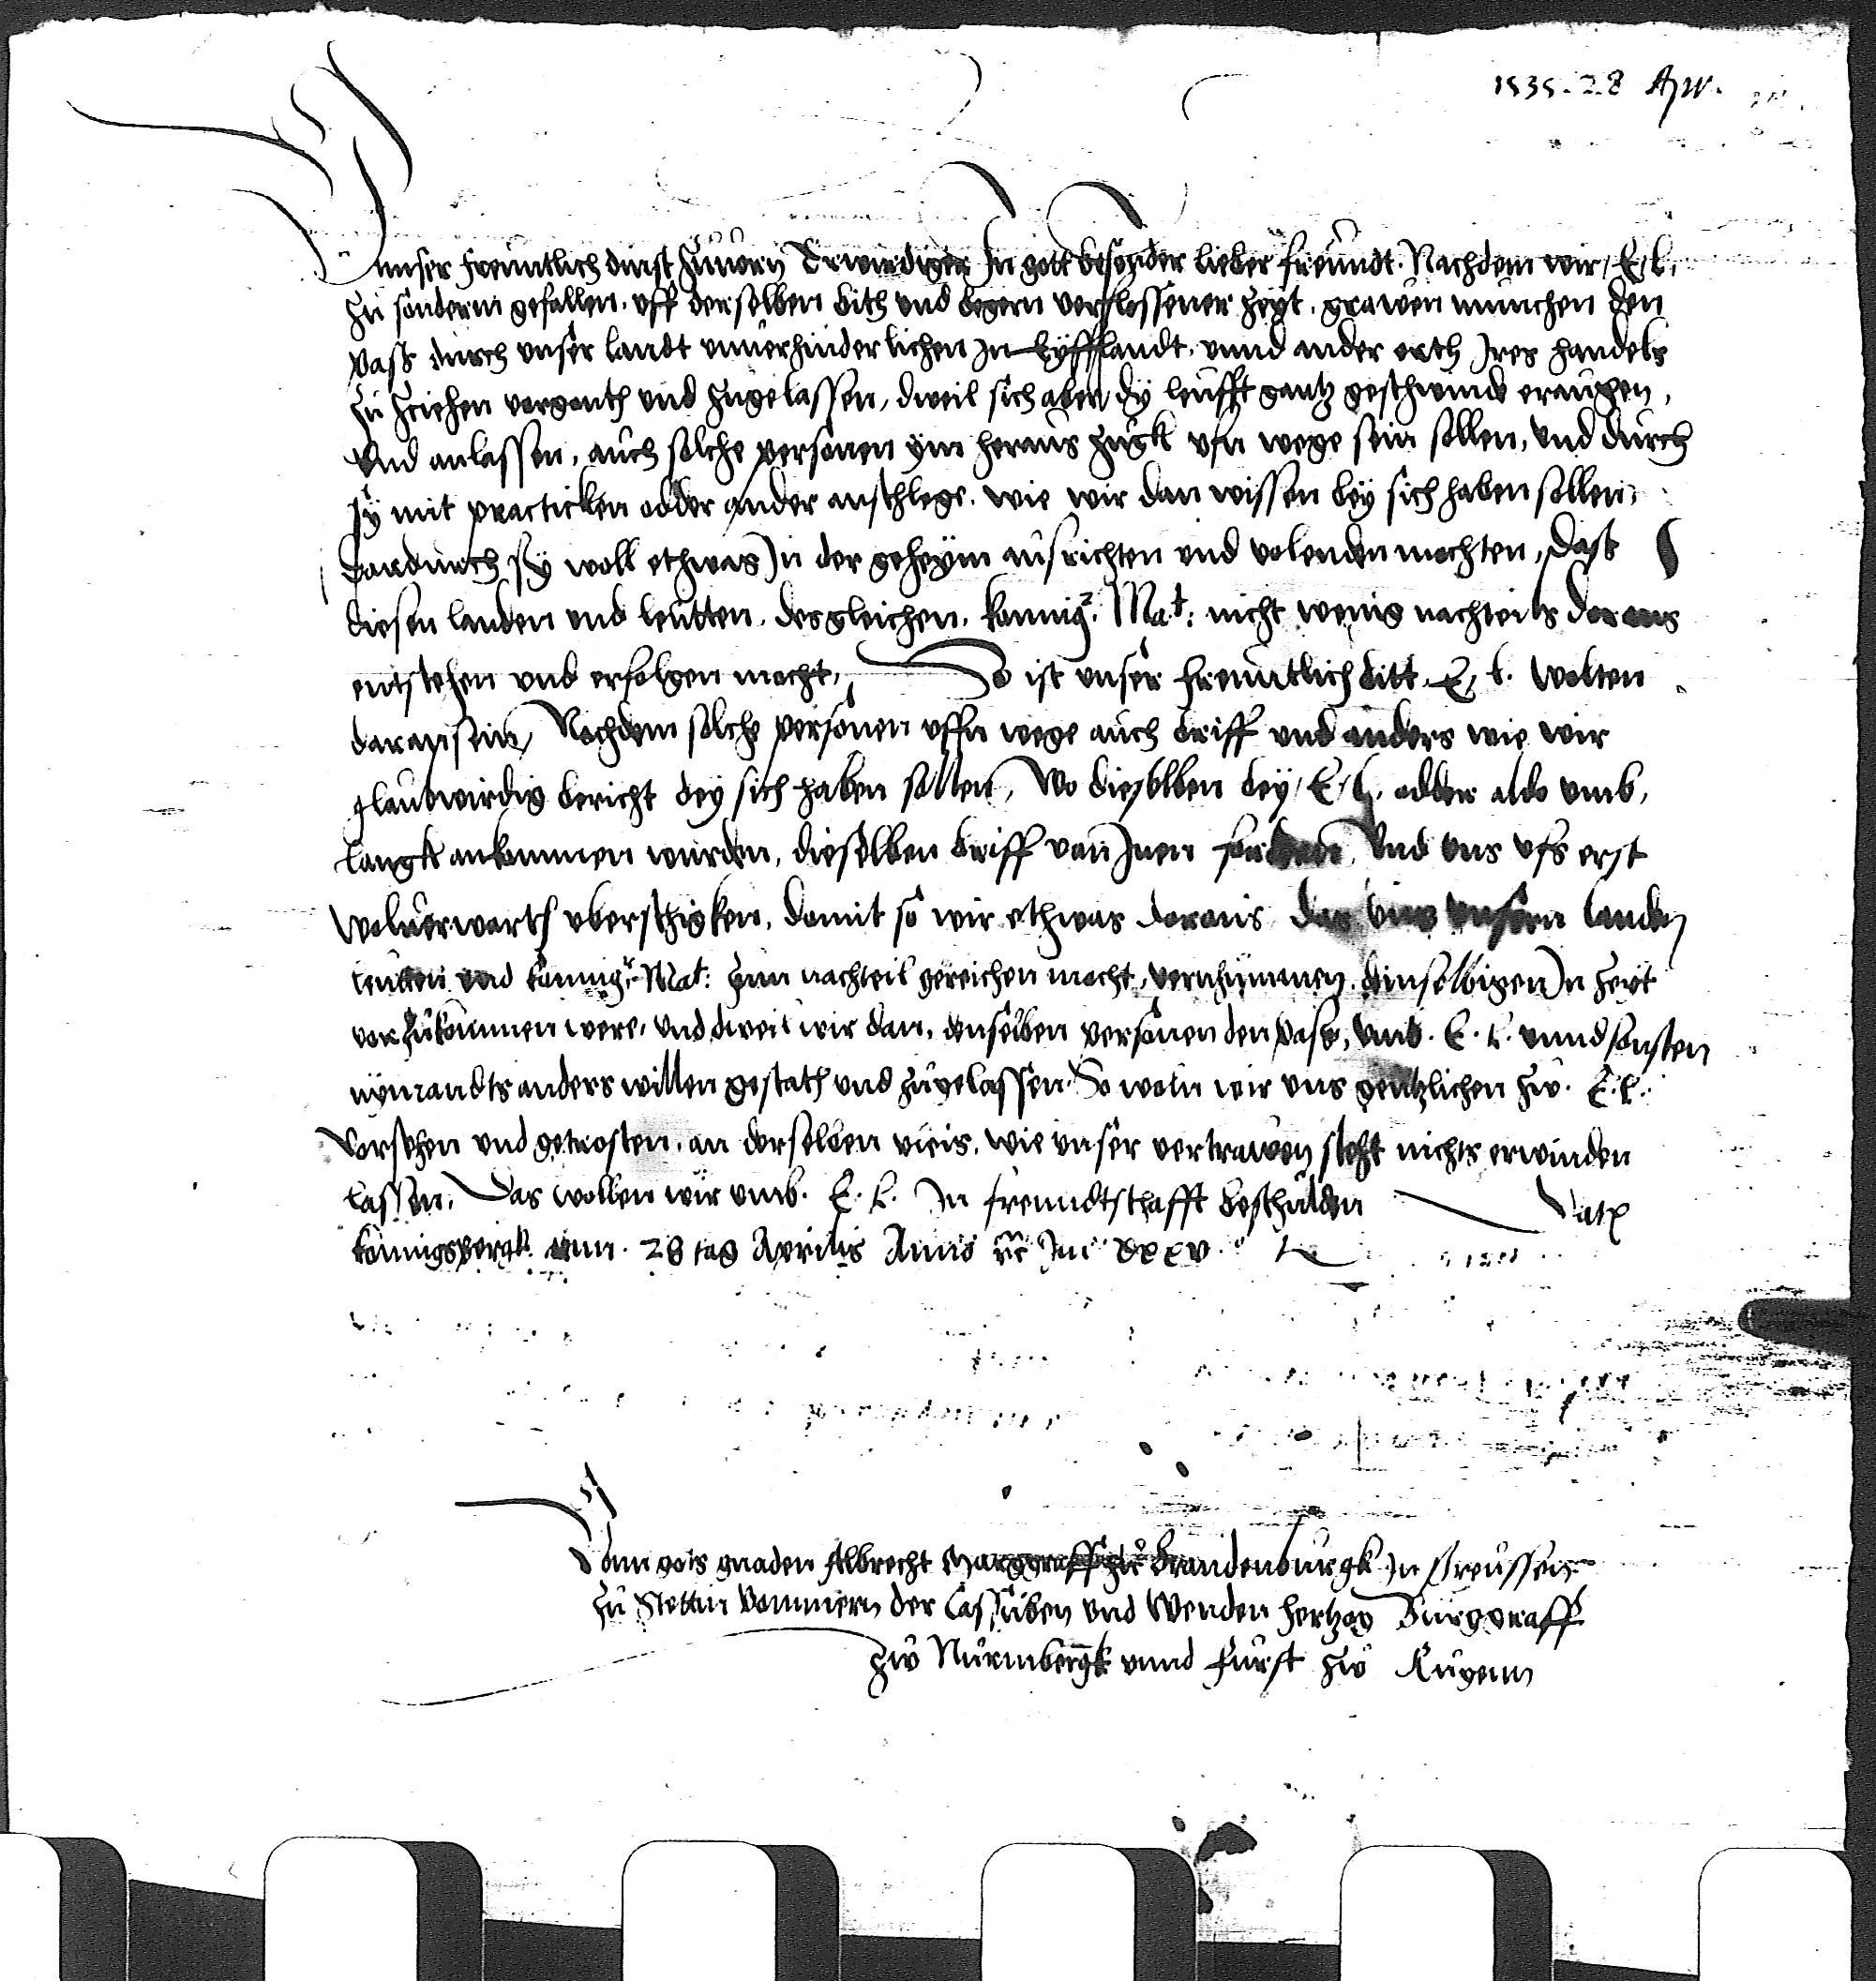 1535. 28 Apr.
Unnser freuntlich dinst zuuorn Erwirdiger In gott besonder lieber freundt. Nachdem wir / E. L.
zu sonderm gefallen, uff derselben bith vnd begern verflossener zeyt, grawen munchen den
Paß durch vnser landt vnuerhinderlichen In Eyfflandt, vnnd ander orth Ires handels
zu ziehen vorgonth vnd zugelassen, dweil sich aber dy leufft gantz geschwinde eraugen,
vnd anlassen, auch solche personen ym heraus zugk vfn wege sein sollen, vnd durch
sy mit practicken odder ander anschlege, wie wir dan wissen bey sich haben sollen,
dardurch sy woll ethwas In der geheym ausrichten vnd volenden mochten, Dast
diesen landen vnd leutten, desgleichen, konnigr. Mat: nicht wenig nachteils doraus
entstehen vnd erfolgen mocht, So ist vnser freuntlich bitt, E. L. wolten
daran sein, Nachdem solche personen vffn wege auch briff vnd anders wie wir
glaubwirdig bericht bey sich haben sollen, Wo dieselben bey / E. L. odder aldo vmb,
langkt ankommen wurden, dieselben briff von Inen fordern, Vnd vns vfs erst
woluerwarth vberschigken, domit so wir ethwas doraus das vns vnsern landen
leutten vnd konnigr. Mat: zum nachteil gereichen mocht, vernhymmen, dem selbigen In zeyt
vor zukommen were, vnd dweil wir dan, denselben personen den paß, vmb. E. L. vnnd sonsten
nymandts anders willen gestath vnd zugelassen. So woln wir vns gentzlichen zw. E. L.
vorsehen vnd getrosten, an derselben vleis, wie vnser vertrawen steht nichts erwinden
lassen, Das wollen wir vmb. E. L. In freundtschafft beschulden Datum
konnigspergk am. 28 tag Aprilis Anno etc Im xxxv.
Vonn gots gnaden Albrecht Marggraff zu Brandenburgk In Preussen
zu Stettin Pommern der Cassuben vnd Wenden hertzog Burggraff
zw Nurmbergk vnnd Furst zw Rugenn